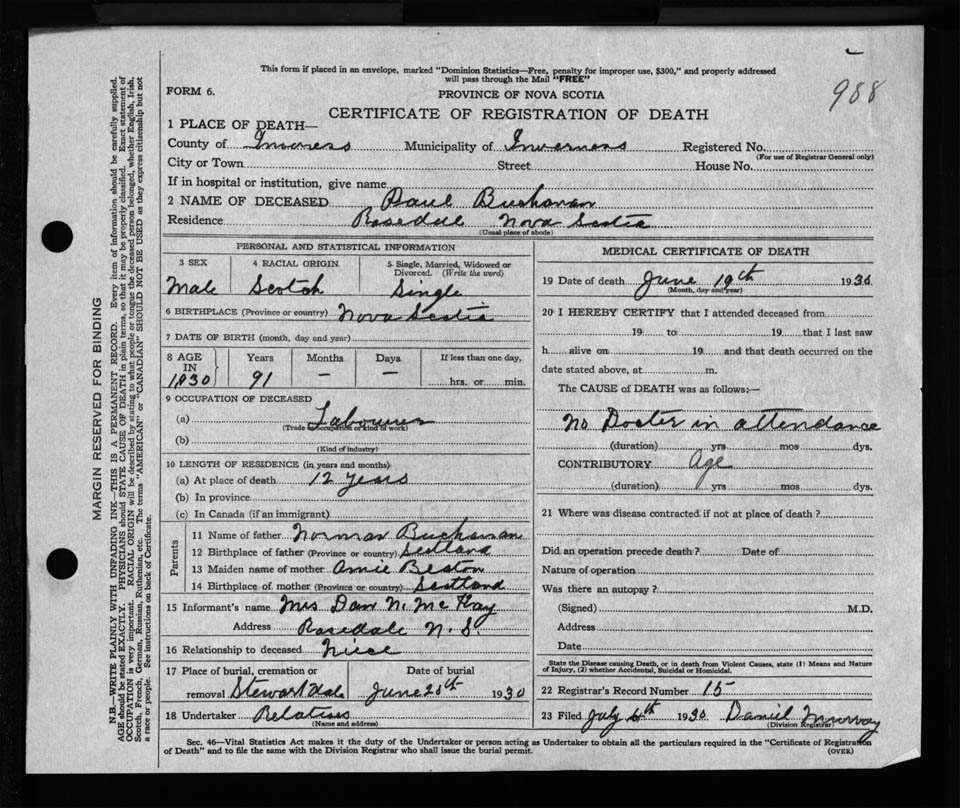 988
This form if placed in an envelope, marked "Dominion Statistics—Free, penalty for improper use, $300," and properly addressed
will pass through the Mail "FREE"
FORM 6.
PROVINCE OF NOVA SCOTIA
CERTIFICATE OF REGISTRATION OF DEATH
1 PLACE OF DEATH—
County of Inverness Municipality of Inverness Registered No.
(For use of Registrar General only)
City or Town Street House No.
If in hospital or institution, give name
2 NAME OF DECEASED Paul Buchanan
Residence Rosedale Nova Scotia
(Usual place of abode)
PERSONAL AND STATISTICAL INFORMATION
3 SEX 4 RACIAL ORIGIN 5 Single, Married, Widowed or
Divorced. (Write the word)
Male Scotch Single
6 BIRTHPLACE (Province or country) Nova Scotia
7 DATE OF BIRTH (month, day and year)
8 AGE IN Years Months Days If less than one day,
1830 91 — — hrs. or min.
9 OCCUPATION OF DECEASED
(a) Labourer
(Trade, occupation or kind of work)
(b)
(Kind of industry)
10 LENGTH OF RESIDENCE (in years and months)
(a) At place of death 12 years
(b) In province
(c) In Canada (if an immigrant)
Parents
11 Name of father Norman Buchanan
12 Birthplace of father (Province or country) Scotland
13 Maiden name of mother Amie Beaton
14 Birthplace of mother (Province or country) Scotland
15 Informant's name Mrs Dan N. McKay
Address Rosedale N.S.
16 Relationship to deceased Niece
17 Place of burial, cremation or Date of burial
removal Stewartdale June 20th 1930
18 Undertaker Relatives
(Name and address)
MEDICAL CERTIFICATE OF DEATH
19 Date of death June 19th 1930
(Month, day and year)
20 I HEREBY CERTIFY that I attended deceased from
19 to 19 that I last saw
h alive on 19 and that death occurred on the
date stated above, at m.
The CAUSE of DEATH was as follows:—
No Docter in attendance
(duration) yrs mos dys.
CONTRIBUTORY Age
(duration) yrs mos dys.
21 Where was disease contracted if not at place of death?
Did an operation precede death? Date of
Nature of operation
Was there an autopay?
(Signed) M.D.
Address
Date
State the Disease causing Death, or in death from Violent Causes, state (1) Means and Nature
of Injury, (2) whether Accidental, Suicidal or Homicidal.
22 Registrar's Record Number 15
23 Filed July 4th 1930 Daniel Murray
(Division Registrar)
Sec. 46—Vital Statistics Act makes it the duty of the Undertaker or person acting as Undertaker to obtain all the particulars required in the "Certificate of Registration
of Death" and to file the same with the Division Registrar who shall issue the burial permit. (OVER)
MARGIN RESERVED FOR BINDING
N.B.—WRITE PLAINLY WITH UNFADING INK—THIS IS A PERMANENT RECORD. Every item of information should be carefully supplied.
AGE should be stated EXACTLY. PHYSICIANS should STATE CAUSE OF DEATH in plain terms, so that it may be properly classified. Exact statement of
OCCUPATION is very important. RACIAL ORIGIN will be described by stating to what people or tongue the deceased person belonged, whether English, Irish,
Scotch, French, German, Russian, Ruthenian, etc. The terms "AMERICAN" or "CANADIAN" SHOULD NOT BE USED as they express citizenship but not
a race or people. See instructions on back of Certificate.